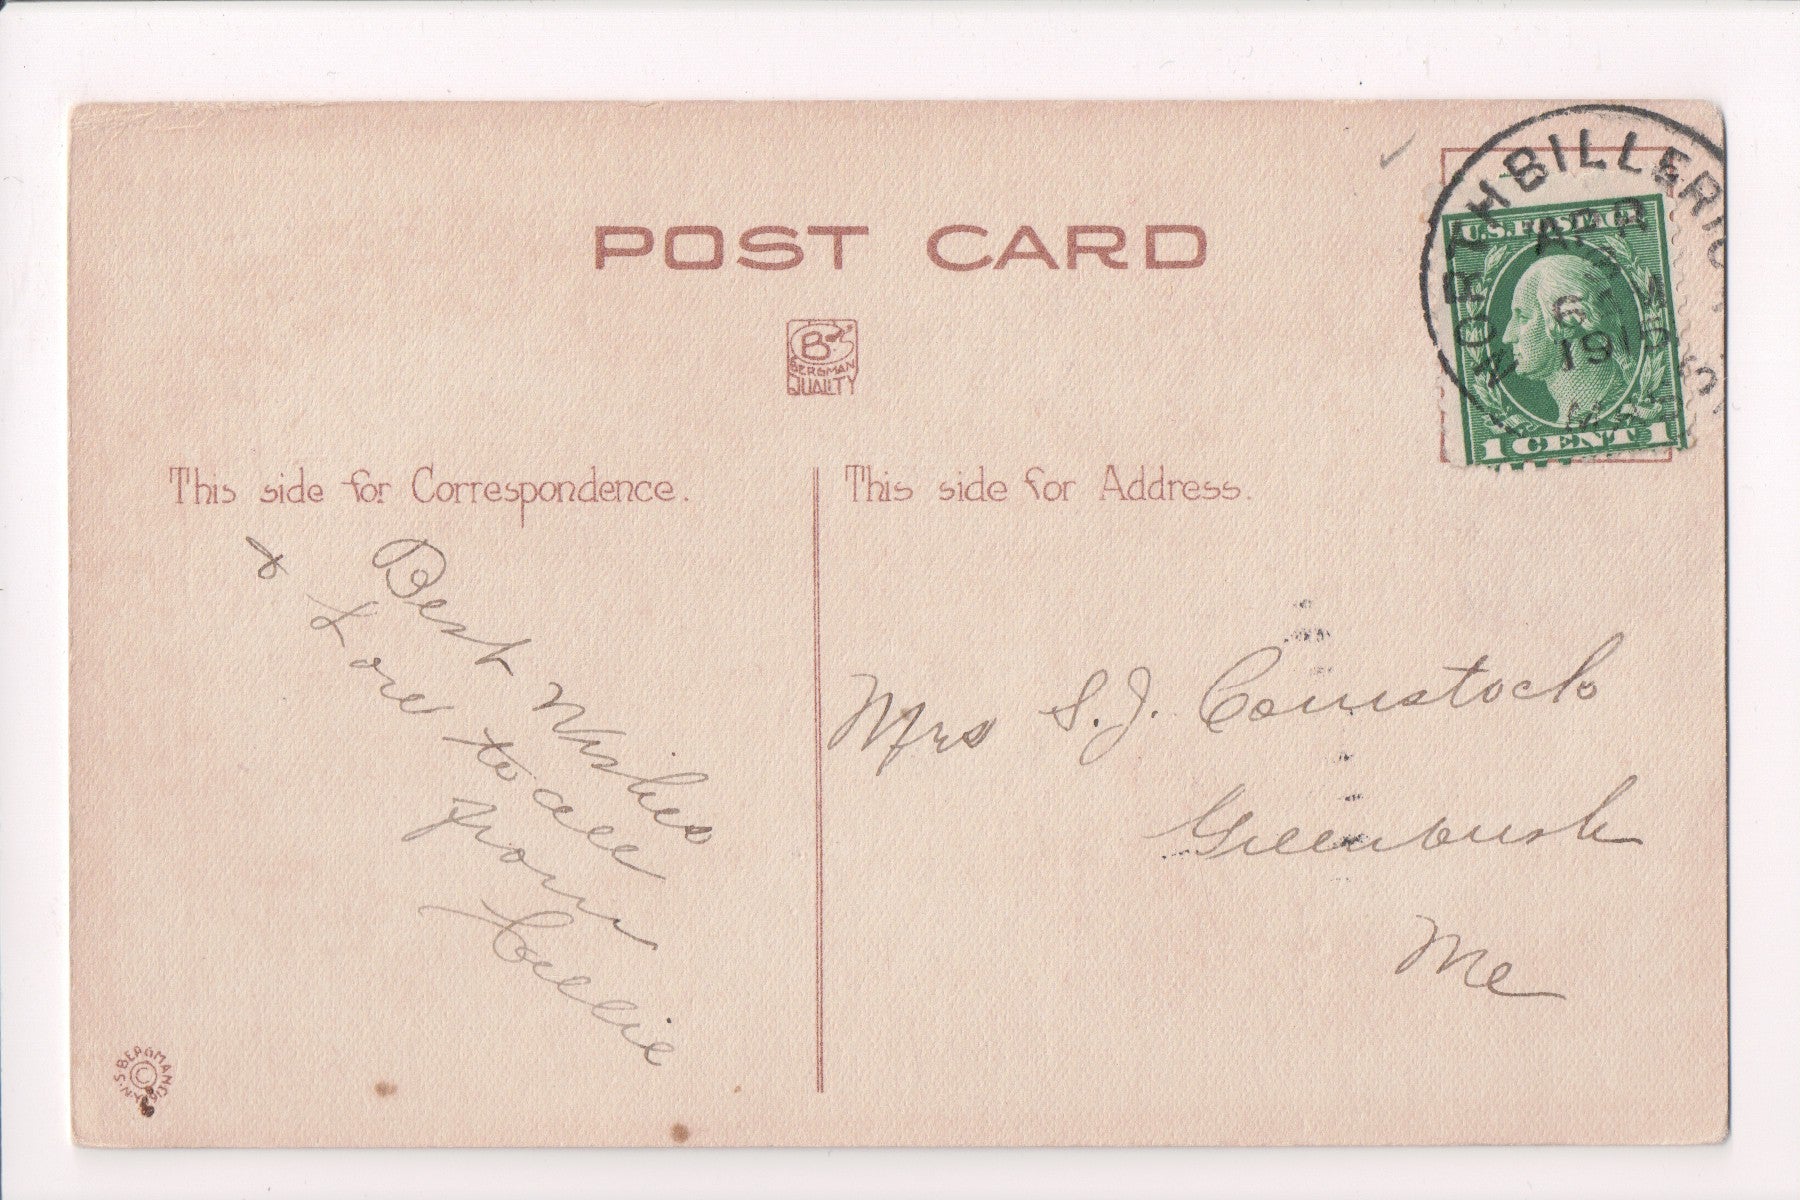 POST CARD
B
BERGMAN
QUALITY
NORTH BILLERICA
APR
6
191
MASS
U.S. POSTAGE
1 CENT 1
This side for Correspondence.
This side for Address.
Best Wishes
& Love to all
from
Mrs S. J. Comstock
Greenbush
Me